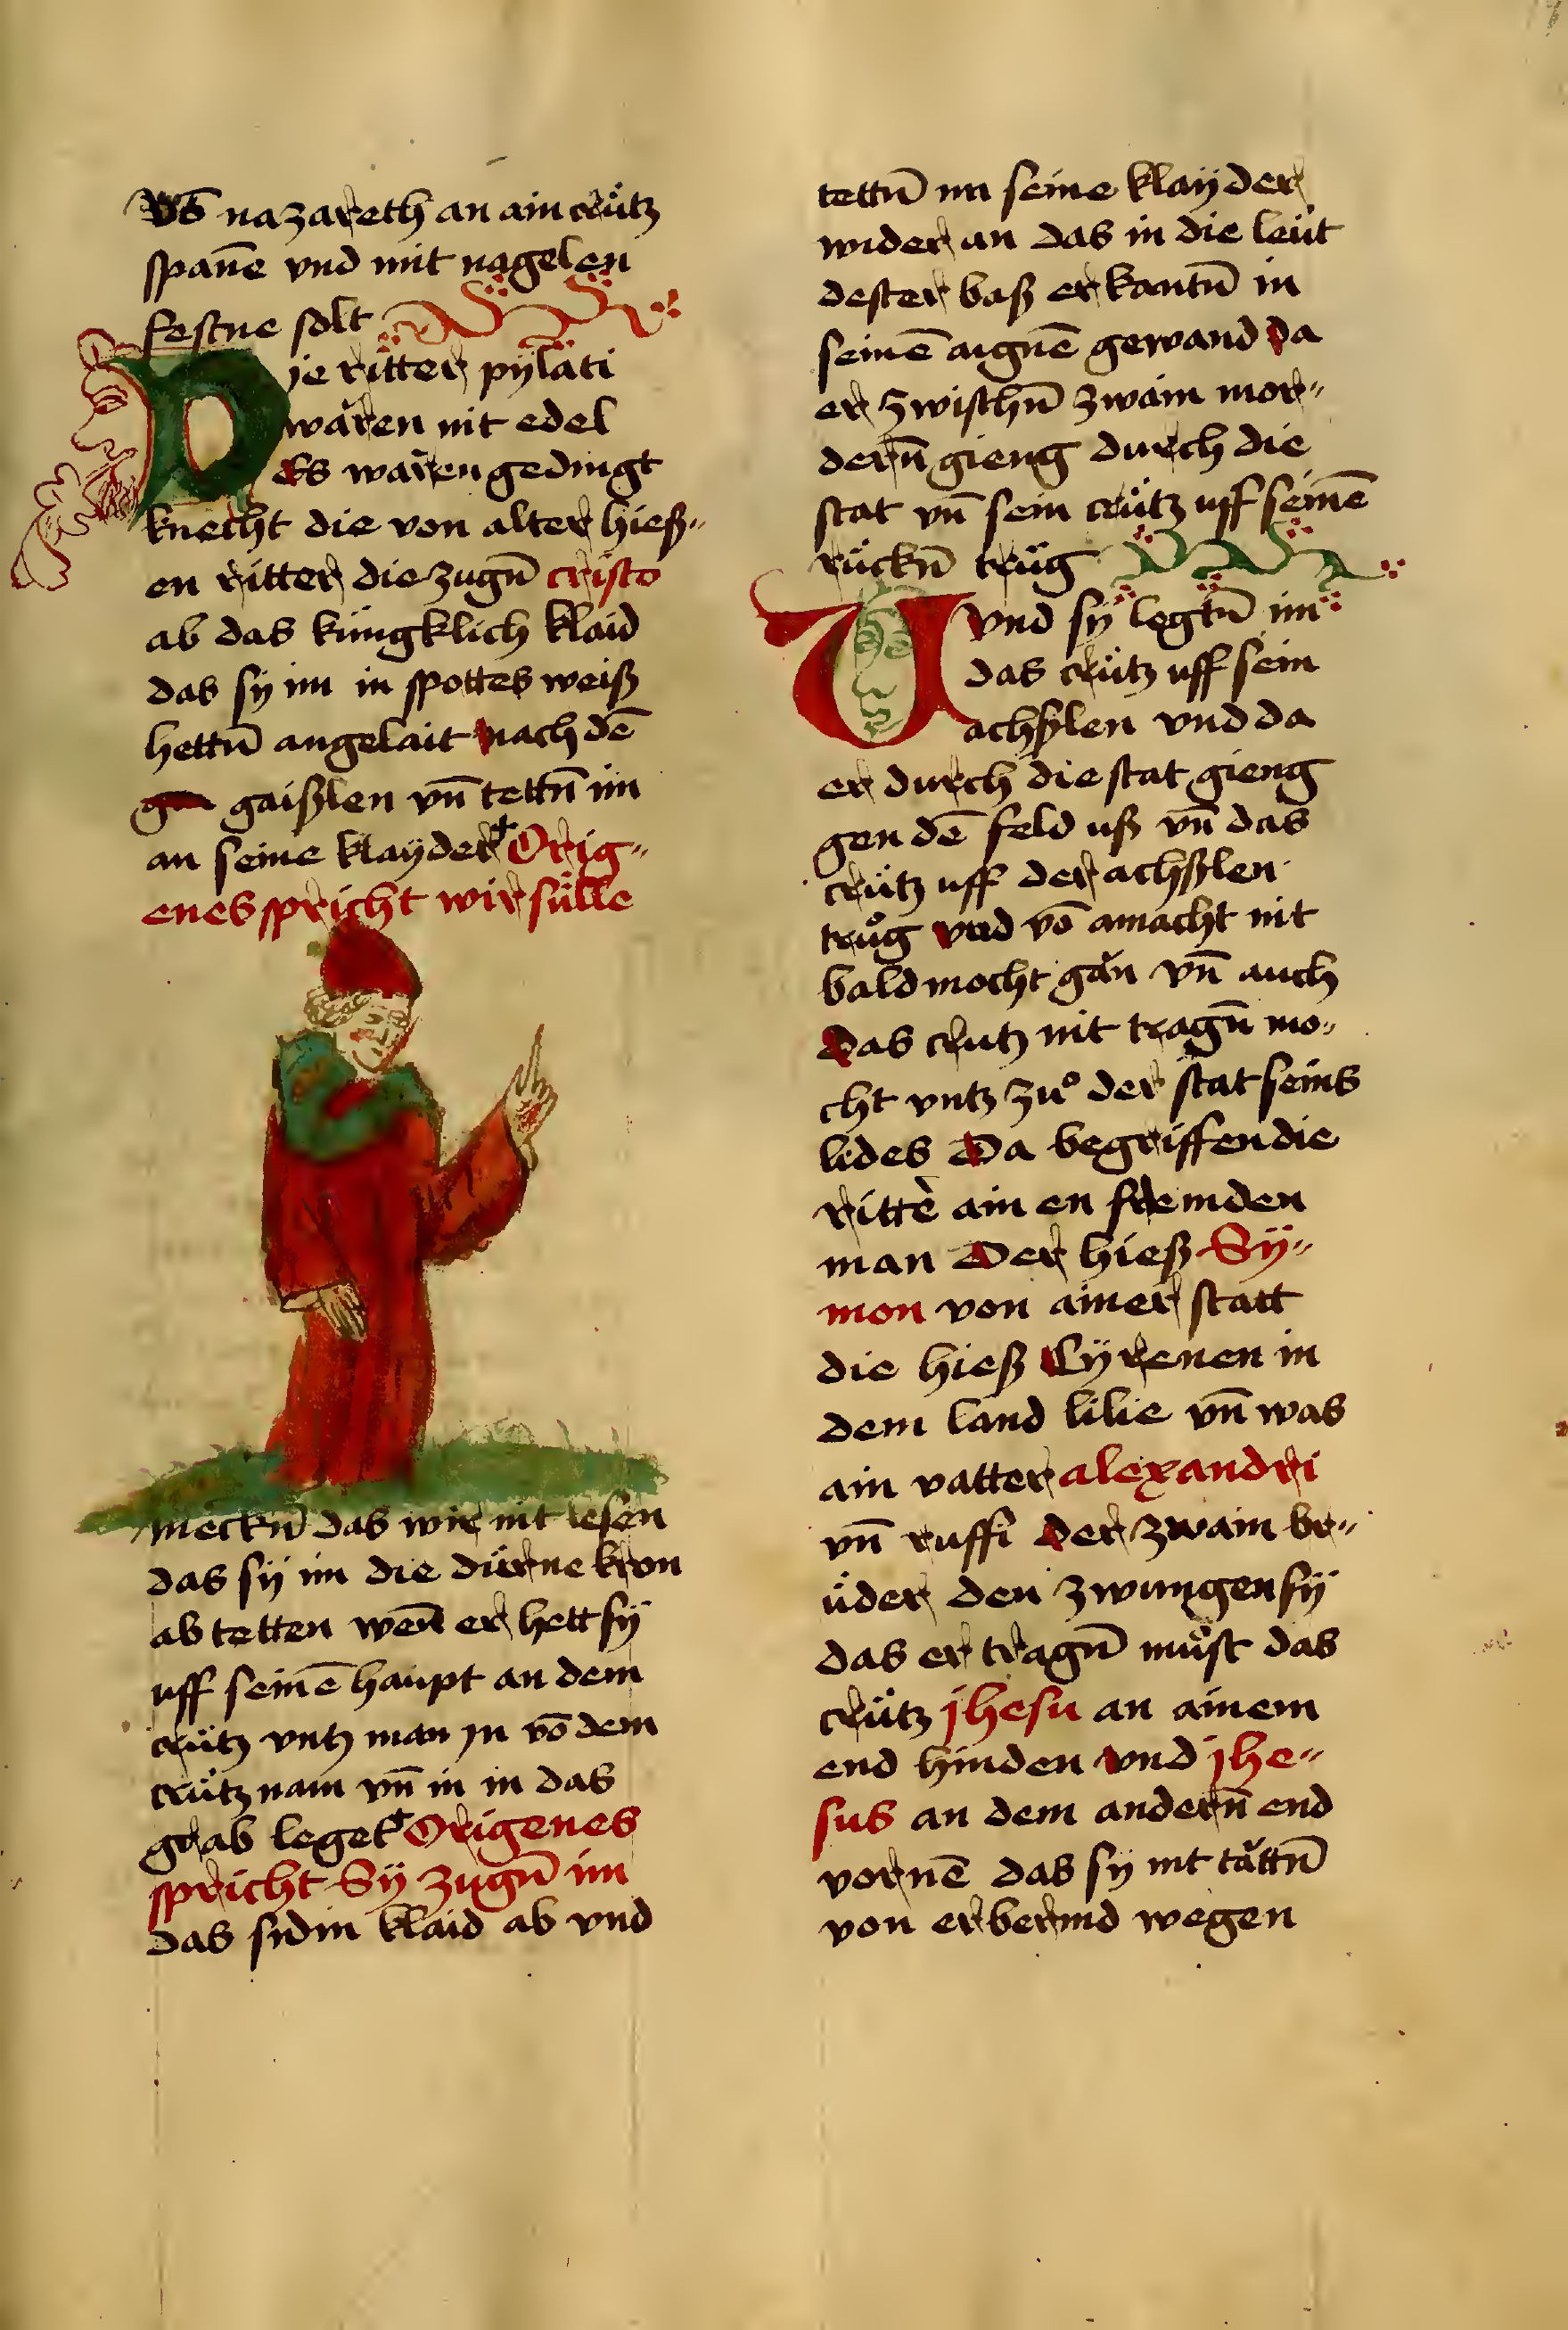 vō nazareth an ain crütz
spañe vnd mit nagelen
festne solt
Die ritter pÿlati
waren nit edel
Es waren gedingt
knecht die von alter hieß〃
en ritter die zugn̄ cristo
ab das küngklich klaid
das sÿ im in spottes weiß
hettn̄ angelait nach dē
gaißlen vn̄ tettn̄ im
an seine klayder Orig〃
enes spricht wir sülle
merckn̄ das wir nit lesen
das sÿ im die dürne kron
ab tetten wen̄ er hett sÿ
uff seinē haupt an dem
crütz vntz man jn vō dem
crütz nam vn̄ in in das
grab leget Origenes
spricht Sÿ zugn̄ im
das sidin klaid ab vnd
tettn̄ im seine klaÿder
wider an das in die leüt
dester baß erkantn̄ in
seinē aignē gewand da
er zwischn̄ zwain mor〃
dern̄ gieng durch die
stat vn̄ sein crütz uff seinē
rückn̄ trüg
Vnd sÿ legtn̄ im
das crütz uff sein
achslen vnd da
er durch die stat gieng
gen dē feld uß vn̄ das
crütz uff der achßlen
truͦg vnd vō amacht nit
bald mocht gän vn̄ auch
das crutz nit tragn̄ mo〃
cht vntz zuͦ der stat seins
lides Da begriffen die
ritter̄ ain en fremden
man Der hieß Sÿ〃
mon von ainer statt
die hieß Cÿrenen in
dem land lilie vn̄ was
ain vatter alexandri
vn̄ ruffi der zwain br〃
üder den zwungen sÿ
das er tragn̄ muͦst das
crütz jhesu an ainem
end hinden vnd jhe〃
sus an dem andern̄ end
vornē das sÿ nit tättn̄
von erbermd wegen